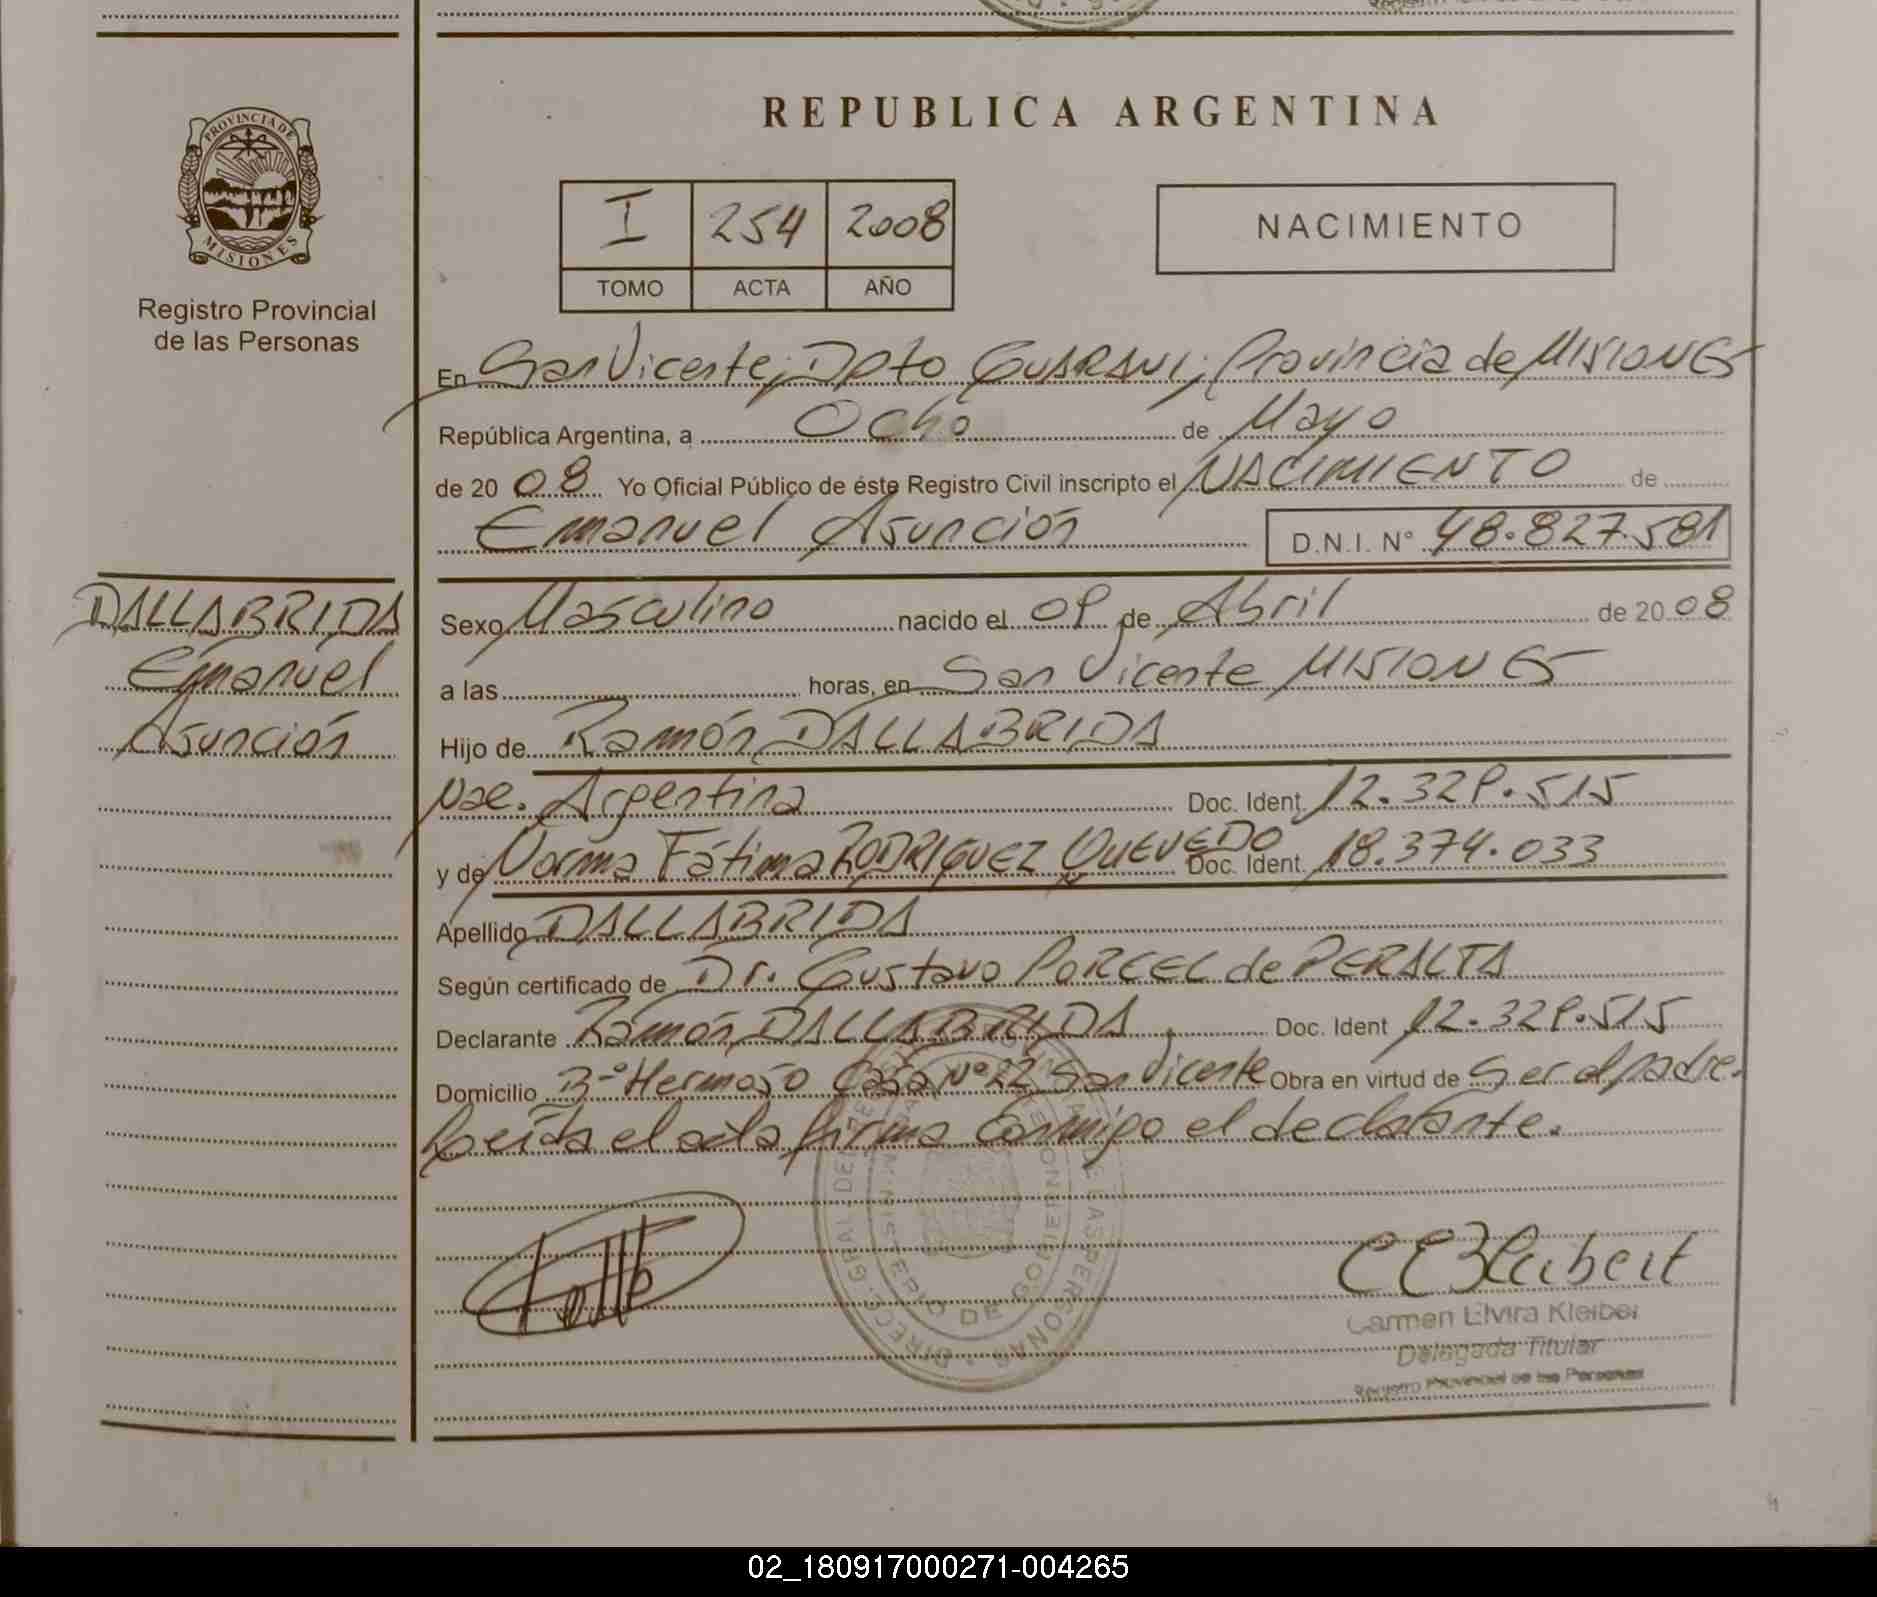 REPUBLICA ARGENTINA
PROVINCIA DE
MISIONES
Registro Provincial
de las Personas
I 254 2008
TOMO ACTA AÑO
NACIMIENTO
En San Vicente, Dpto GUARANI, Provincia de MISIONES
República Argentina, a Ocho de Mayo
de 20 08 Yo Oficial Público de éste Registro Civil inscripto el NACIMIENTO de
Emanuel Asunción D.N.I. N° 48.827.581
DALLABRIDA
Emanuel
Asunción
Sexo Masculino nacido el 09 de Abril de 20 08
a las horas, en San Vicente MISIONES
Hijo de Ramón DALLABRIDA
Nac. Argentina Doc. Ident. 12.329.515
y de Norma Fátima RODRIGUEZ QUEVEDO Doc. Ident. 18.374.033
Apellido DALLABRIDA
Según certificado de Dr. Gustavo PORCEL de PERALTA
Declarante Ramón DALLABRIDA Doc. Ident 12.329.515
Domicilio B° Hermoso Casa N° 22 San Vicente Obra en virtud de Ser el padre.
Leída el acta firma conmigo el declarante.
Carmen Elvira Kleiber
Delegada Titular
Registro Provincial de las Personas
02_180917000271-004265